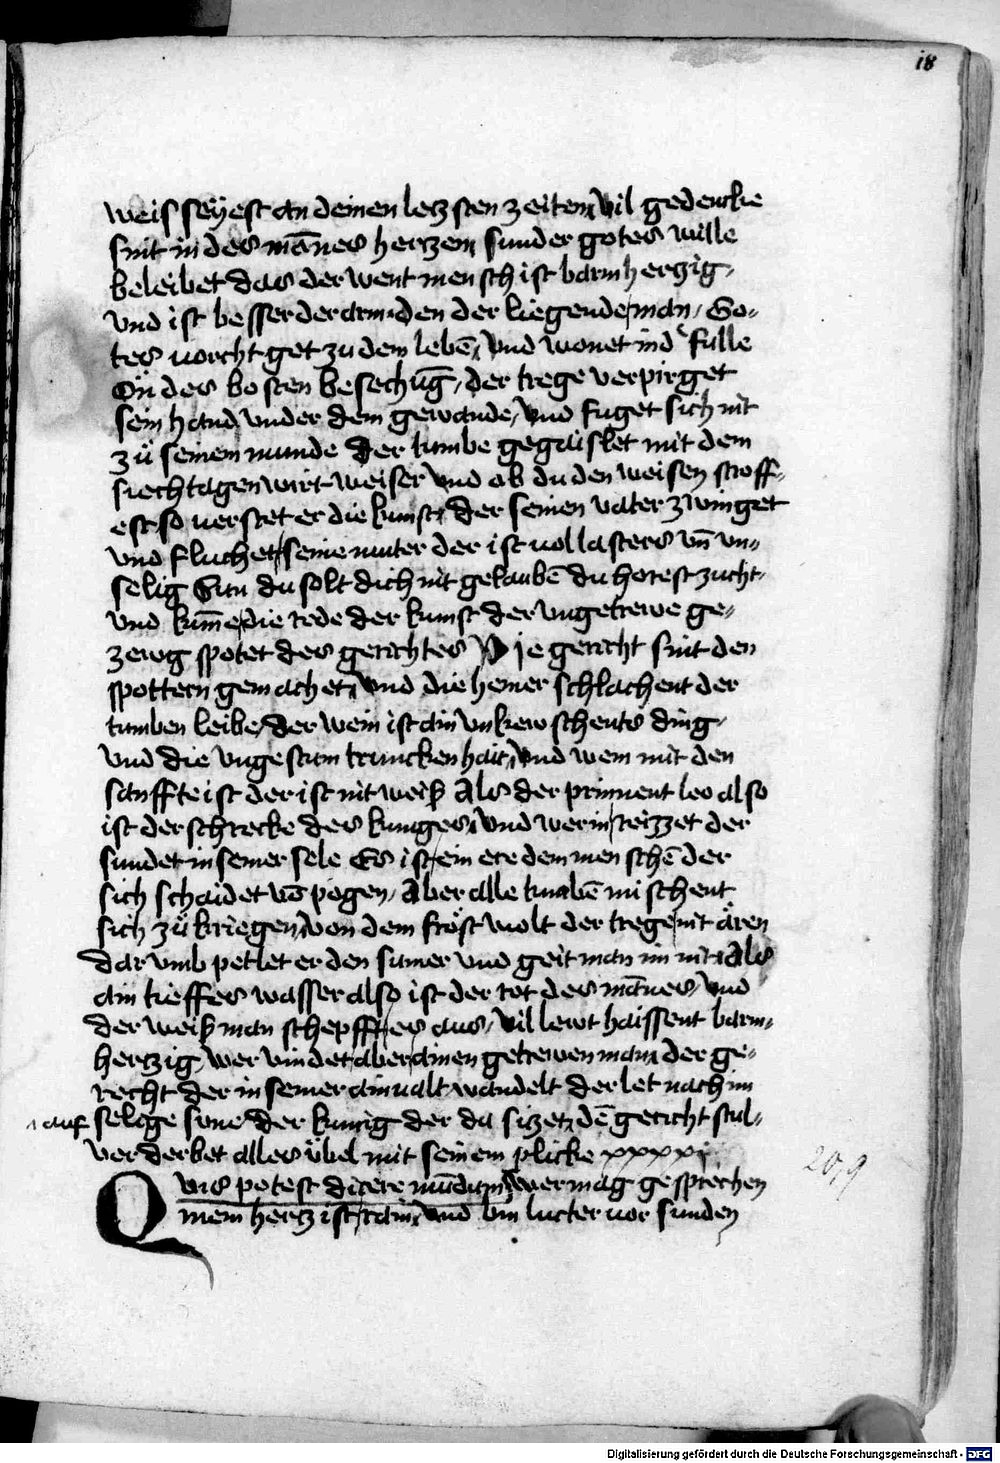 18
weis seyest an deinen letzsten zeiten, Vil gedencke
sint in des mānes hertzen, sunder gotes wille
beleibet das der went mensch ist barmhertzig,
Vnd ist besser der arm, den der liegende man, Go-
tes vorcht get zu dem lebē, Vnd wonet in d' fulle
On des bosten besechūg, der trege verpirget
sein hand vnder dem gewande, Vnd fuget sich nit
zů seinem munde Der tumbe gegaislet mit dem
siechtagen wirt weiser Vnd ob du den weisen stroff-
est so verstet er die kunst, Der seinen vater zwinget
vnd fluchet seine muter der ist vol lasters vn̄ vn-
selig Sun du solt dich nit gelaubē du horest zucht,
vnd kum̄e die rede der kunst der vngetrewe ge-
zewg spotet des gerichtes Die gericht sint den
spottern gemachet, Vnd die hemer schlachent der
tumben leibe, Der wein ist ain vnkewschents ding,
vnd die vngestum trunckenhait, Vnd wem mit den
sanffte ist der ist nit weiß Als der priment leo also
ist der schrecke des kunges, Vnd wer in reitzzet der
sundet in seiner sele Es ist ein ere dem menschē der
sich schaidet vō pogen, Aber alle knabē mischent
sich zů kriegen, Von dem frost wolt der trege nit ären
dar vmb petlet er den sumer vnd geit man im nit, Als
ain tieffes wasser also ist der rot des mānes, Vnd
der weiß man schepffet es aus, Vil lewt haissent barm-
hertzig, Wer vindet aber ainen getrewen man, der ge-
recht der in seiner ainualt wandelt der let nach im
auf selige süne Der kunig der da sizet, dē gericht stul-
verderbet alles übel mit seinem plicke xxxxi
Qvis potest dicere mūdum, Wer mag gesprechen
mein hertz ist rain, Vnd bin luter vor sunden
20,9
Digitalisierung gefördert durch die Deutsche Forschungsgemeinschaft - DFG